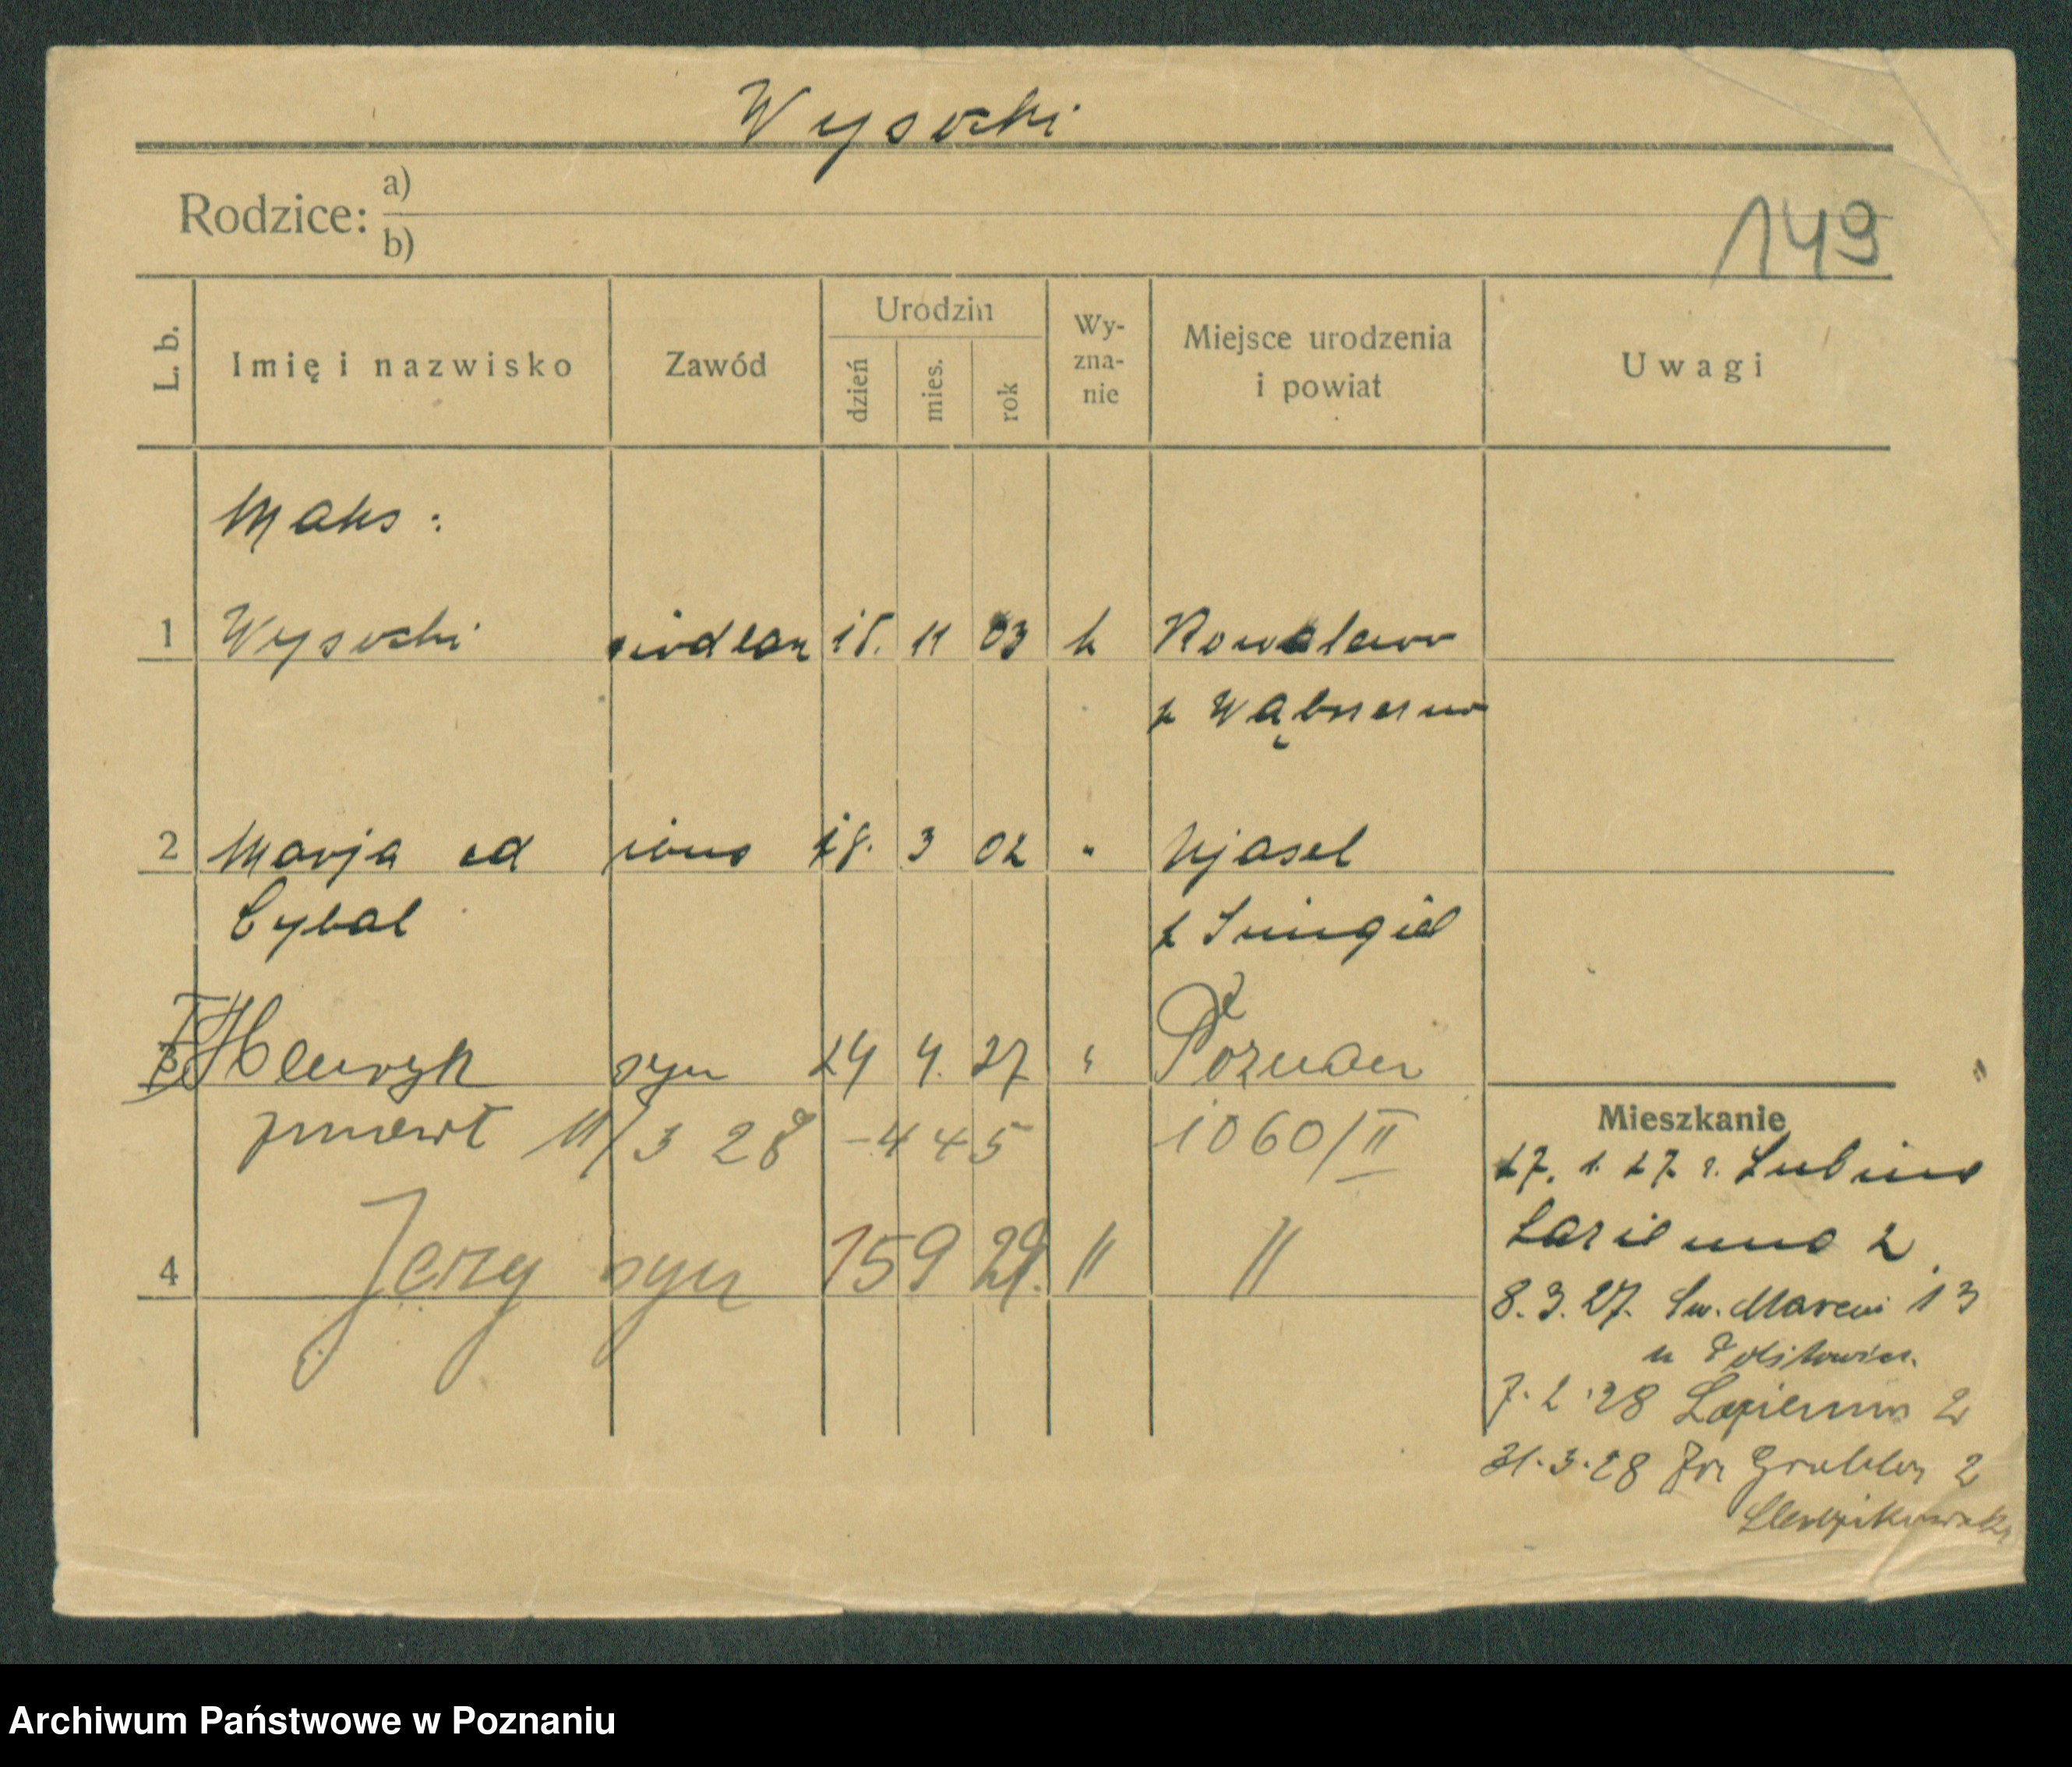 Wysocki
Rodzice: a)
b)
149
L. b. Imię i nazwisko Zawód Urodzin dzień mies. rok Wyznanie Miejsce urodzenia i powiat Uwagi
Maks:
1 Wysocki siodlarz 15. 11 03 k Kowalewo
p Wąbrzeźno
2 Marja od żona 18. 3 02 " Ujazd
Cybal p Śmigiel
3 Henryk syn 24 4. 27 " Poznań
zmarł 11/3 28 -445 1060/II
4 Jerzy syn 15 9 29. " "
Mieszkanie
27. 1. 27. r. Lubina
Łazienna 2
8. 3. 27. Św. Marcin 13
u
7. 2. 28 Łazienna 2
31. 3. 28 Na Grobli 2
Archiwum Państwowe w Poznaniu